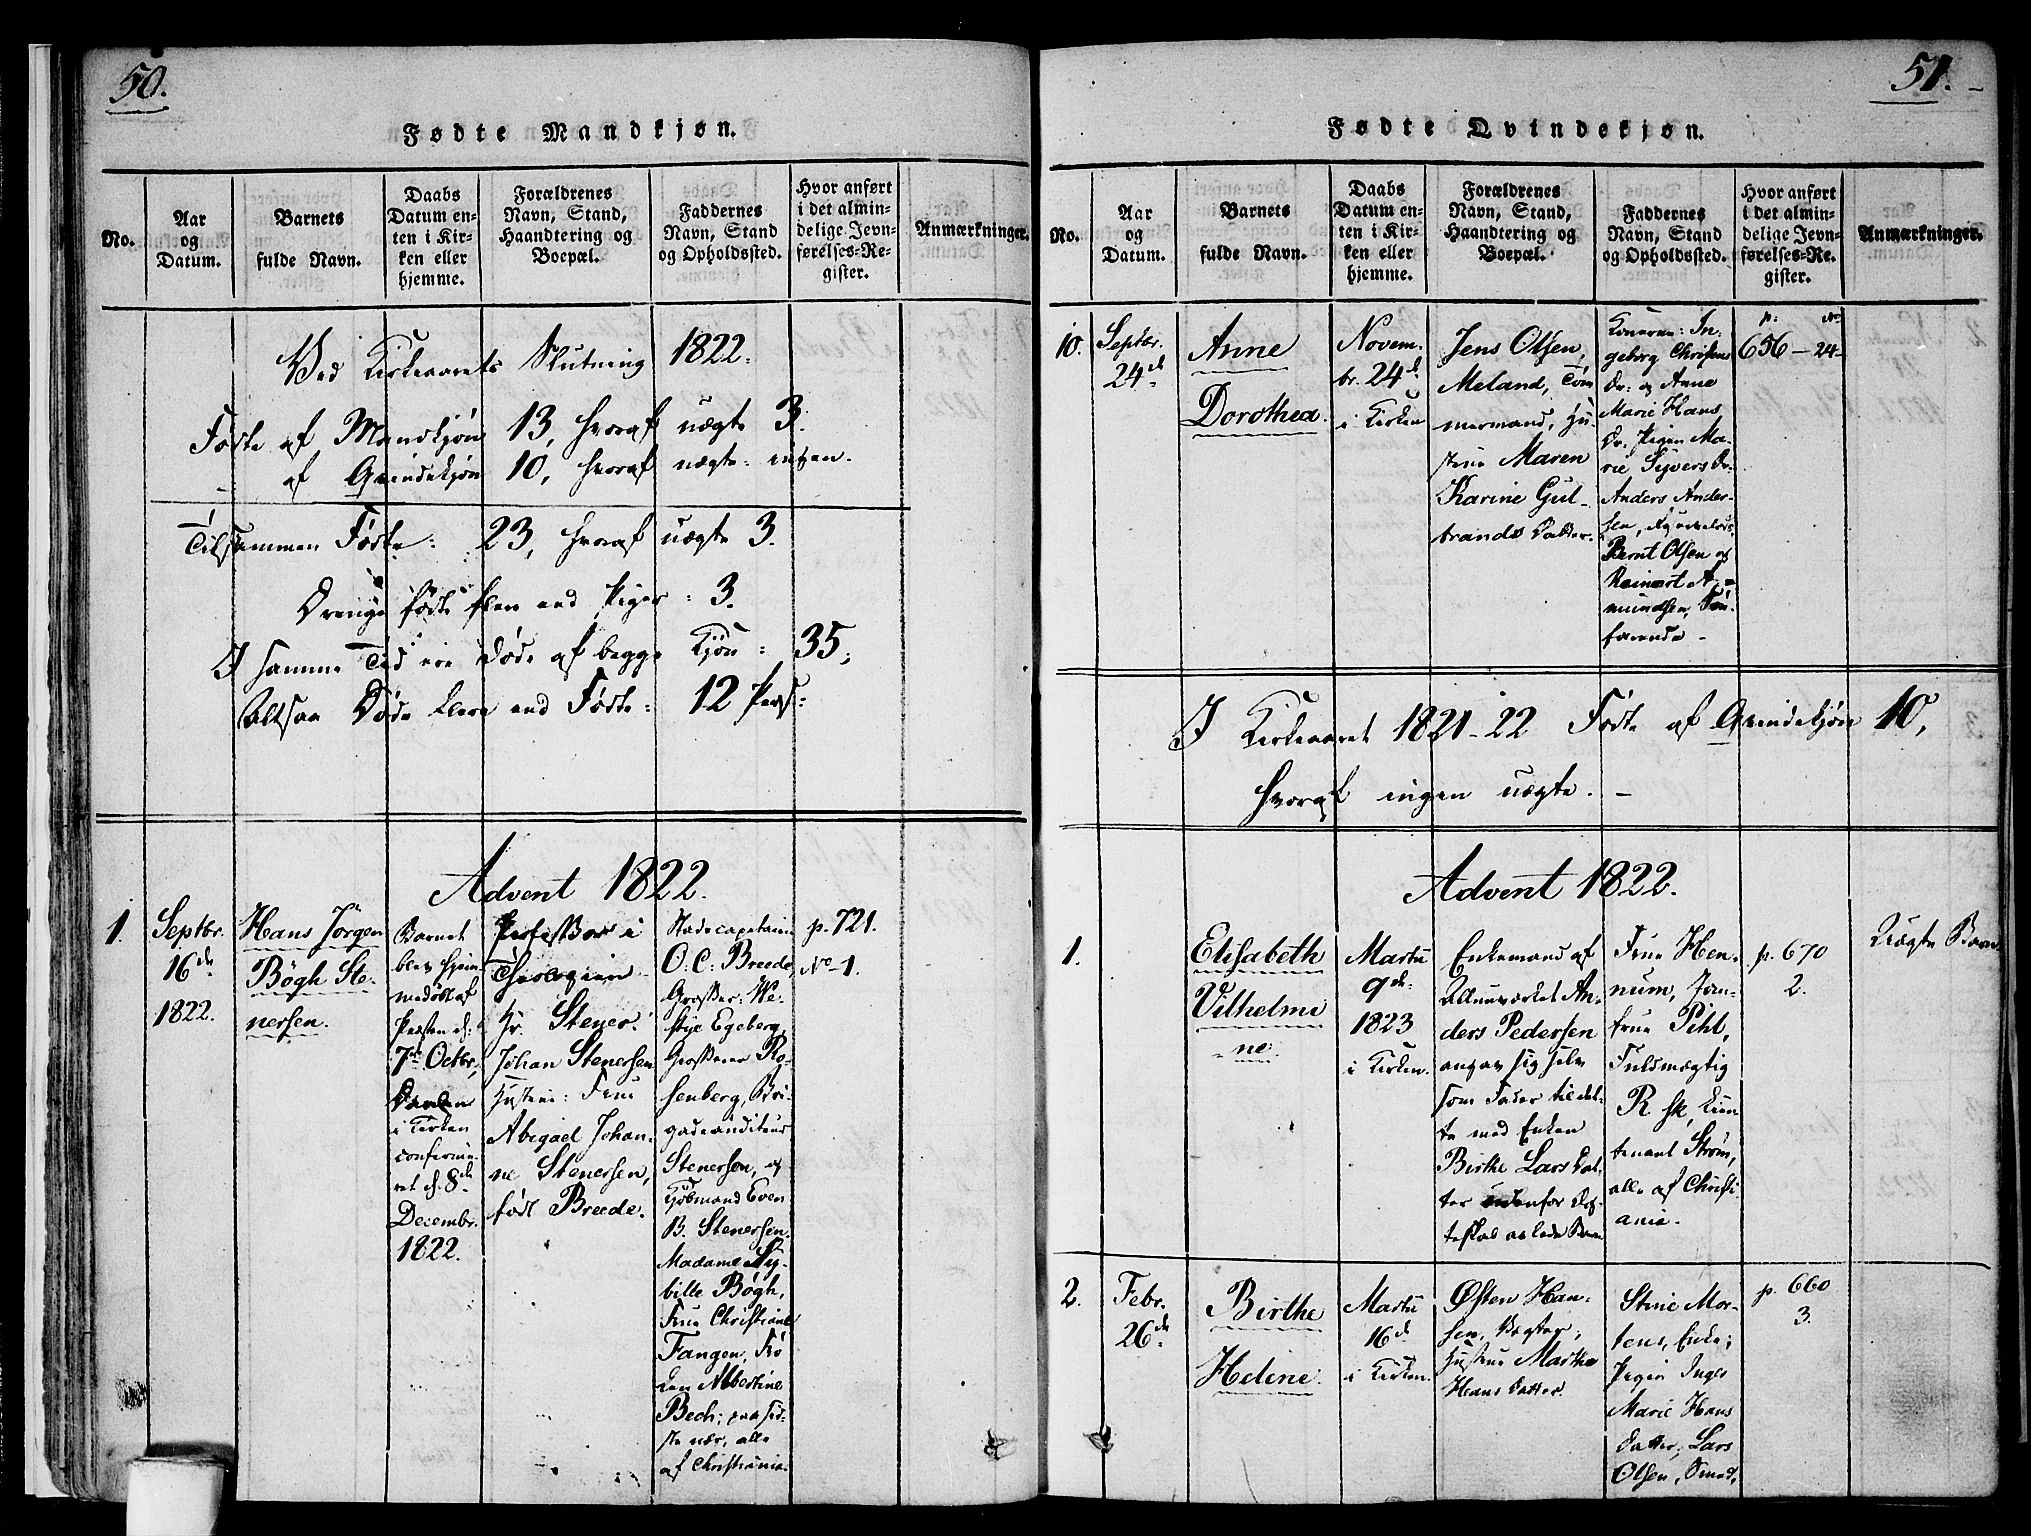 50.
Fødte Mandkjøn.
No.
Aar
og
Datum.
Barnets
fulde Navn.
Daabs
Datum en-
ten i Kir-
ken eller
hjemme.
Forældrenes
Navn, Stand,
Haandtering og
Boepæl.
Faddernes
Navn, Stand
og Opholdssted.
Hvor anført
i det almin-
delige Jevn-
førelses-Re-
gister.
Anmærkninger.
Ved Kirkeaarets Slutning 1822.
Fødte af Mandkjøn 13, hvoraf uægte 3.
af Qvindekjøn 10, hvoraf uægte: ingen.
Tilsammen Fødte: 23, hvoraf uægte 3.
Drenge fødte flere end Piger: 3.
I samme Tid ere døde af begge Kjøn: 35;
Altsaa Døde flere end Fødte: 12 Pers:
Advent 1822.
1.
Septbr.
16de
1822.
Hans Jörgen
Bögh Ste-
nersen.
Barnet
blev hjem-
medøbt af
Præsten d.
7de Octbr.,
Daaben
i Kirken
confirme-
ret d. 8de
Decembr.
1822.
Professor i
Theologien
Hr. Stener
Johan Stenersen
Hustrue: Frue
Abigael Johan-
ne Stenersen,
født Breede.
Stadscapitain
O. C: Breede,
Grosserer: We-
stye Egeberg,
Grosserer Ro-
senberg, Bri-
gadeauditeur
Stenersen, og
Kjøbmand Even
B. Stenersen.
Madame Sy-
bille Bögh,
Frue Christiane
Fangen, Frö-
ken Albertine
Bech; paa sid-
ste nær, alle
af Christiania.
p. 721.
No 1.
51.
Fødte Qvindekjøn.
No.
Aar
og
Datum.
Barnets
fulde Navn.
Daabs
Datum en-
ten i Kir-
ken eller
hjemme.
Forældrenes
Navn, Stand,
Haandtering og
Boepæl.
Faddernes
Navn, Stand
og Opholdssted.
Hvor anført
i det almin-
delige Jevn-
førelses-Re-
gister.
Anmærkninger.
10.
Septbr.
24de
Anne
Dorothea.
Novem-
br. 24de
i Kirken
Jens Olsen,
Meland, Töm-
mermand, Hu-
strue Maren
Karine Gul-
brands Datter.
Konerne: In-
geborg Christens
Dr: og Anne
Marie Hans
Dr. Pigen Ma-
rie Syvers Dr.
Anders Ander-
sen,
Bernt Olsen og
Reinert A-
mundsen, Söe-
farende
p: No
656 – 24
I Kirkeaaret 1821-22 Fødte af Qvindekjøn 10,
hvoraf ingen uægte.
Advent 1822.
1.
Elisabeth
Vilhelmi-
ne.
Martii
9de
1823
i Kirken.
Enkemand af
Alunværket An-
ders Pedersen
angav sig selv
som Fader til det-
te med Enken
Birthe Lars Dat-
ter udenfor Eg-
teskab avlede Barn
Frue Hen-
num, Jom-
frue Pihl,
Fuldmægtig
R sk, Lieu-
tenant Ström,
alle af Christi-
ania.
p. 670
2.
Uægte Barn
2.
Febr.
26de
Birthe
Helene.
Martii
16de
i Kirken.
Østen Han-
sen, Bögter,
Hustrue Marthe
Hans Datter.
Stine Mor-
tens, Enke;
Pigen Inger
Marie Hans
Datter, Lars
Olsen, Smed,
p. 660
3.